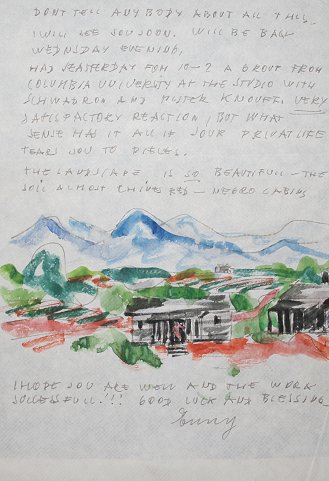 DONT TELL ANYBODY ABOUT ALL THIS.
I WILL SEE YOU SOON. WILL BE BACK
WEDNESDAY EVENING,
HAD YEASTERDAY FOM 10-2 A GROUP FROM
COLUMBIA UNIVERSITY AT THE STUDIO WITH
SCHWADRON AND PUSTER KNOWET, VERY
SATISFACTORY REACTION, BUT WHAT
SENSE HAS IT ALL IF YOUR PRIVATLIFE
TEARS YOU TO PIECES.
THE LANDSCAPE IS SO BEAUTIFULL - THE
SOIL ALMOST CHINES RED - NEGRO CABINS
I HOPE YOU ARE WELL AND THE WORK
SUCCESSFULL!!! GOOD LUCK AND BLESSING